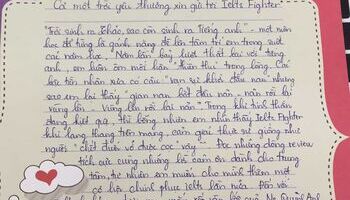 Có một trái yêu thương xin gửi tới Ielts Fighter.
"Trời sinh ra Thảo, sao còn sinh ra Tiếng anh" - một môn
học đã từng là gánh nặng đè lên tâm trí em trong suốt
cả năm học. Năm lần bảy lượt thất bại với tiếng
anh, em luôn ôm mối hận "thiên thu" trong lòng. Cái
bọn tôn nhân xưa có câu "vạn sự khởi đầu nan" nhưng
sao em lại thấy "gian nan bắt đầu nản - nản rồi lại
vùng lên - Vùng lên rồi lại nản". Trong khi tinh thần
đang kiệt quệ, thì bỗng nhiên em nhìn thấy Ielts Fighter
khi lang thang trên mạng, cảm giác thật sự giống như
người "chết đuối vớ được cọc" vậy. Đọc những dòng review
tích cực cùng những lời cảm ơn dành cho trung
tâm, tự nhiên em muốn cho mình thêm một
cơ hội chinh phục ielts lần nữa. Đến với